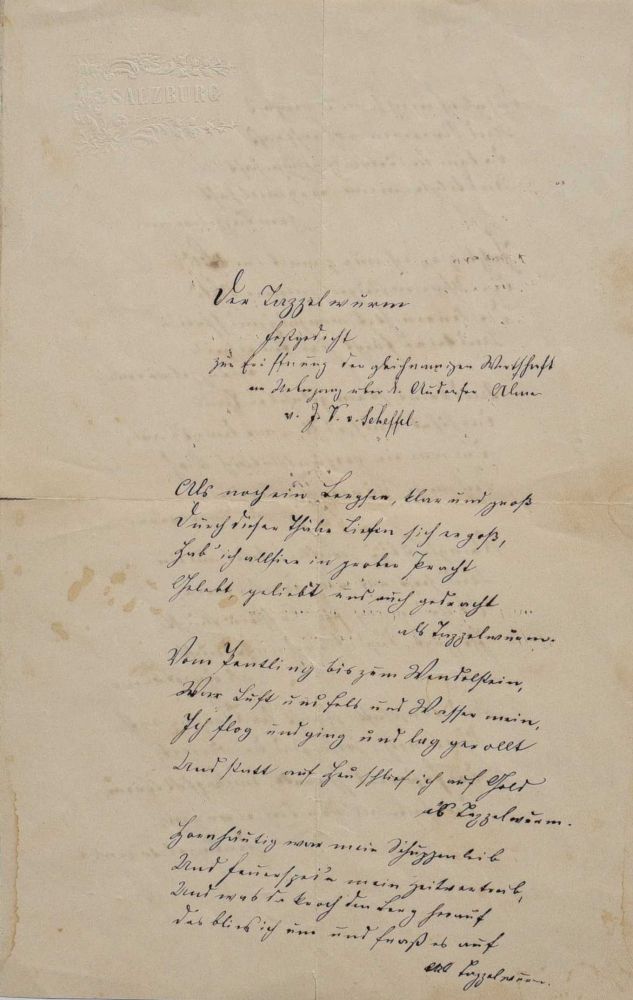 SALZBURG
Der Tazzelwurm
Festgedicht
zur Eröffnung der gleichnamigen Wirthschaft
am Uebergang über d. Audorfer Alme
v. J. V. v. Scheffel.
Als noch ein Bergsee, klar und groß
Durch dieser Thäler Tiefen sich ergoß,
Hab' ich allhier in grober Pracht
Gelebt, geliebt und auch gedracht
als Tazzelwurm.
Vom Pentling bis zum Wendelstein,
War Luft und Fels und Wasser mein,
Ich flog und ging und lag gerollt
Und statt auf Heu schlief ich auf Gold
als Tazzelwurm.
Hornhäutig war mein Schuppenleib
Und Feuerspei'n mein Zeitvertreib,
Und was da kroch den Berg herauf
Das blies ich um und fraß es auf
als Tazzelwurm.